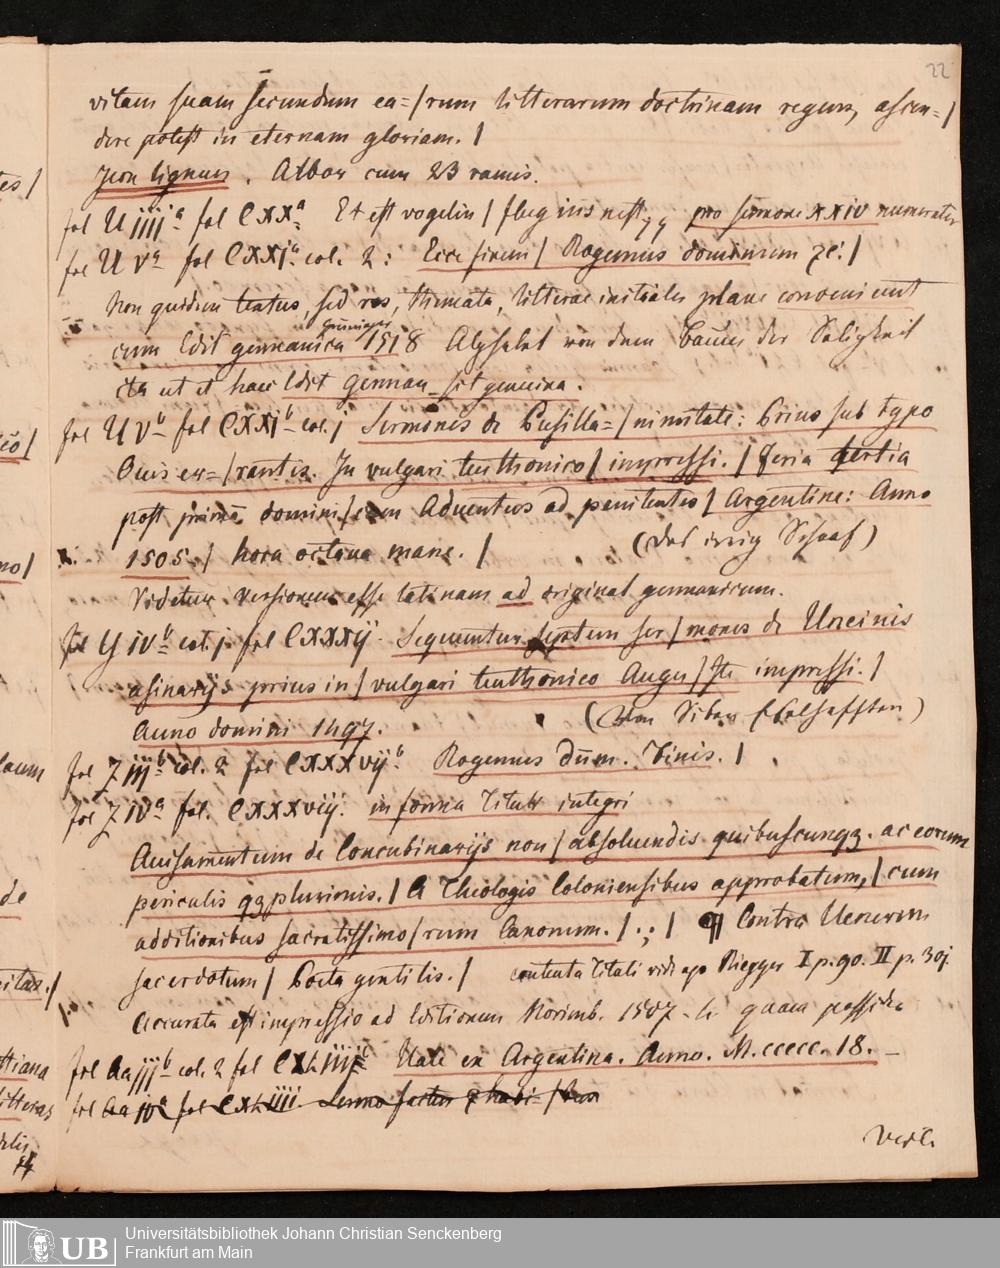 22
vitam suam secundum ea=/rum litterarum doctrinam regere, ascen=/
dere potest in eternam gloriam. /
Icon lignea. Arbor cum 23 ramis.
fol U iiij a fol CXX a Et est vogelin / flug ins nest pro sermone XXIV numeratur
fol U v a fol CXXj a col. 2: Ecce finem / Rogemus dominum &c: /
Non quidem textus, sed res, themata, litterae initiales plane conveniunt
cum Edit germanica Grüninger 1518 Alphabet von dem Baum der Saligkeit
ita ut et haec Edit german sit genuina.
fol U v b fol CXXj b col. j Sermones de Pusilla=/nimitate: Prius sub typo
Ouis er=/rantis. In vulgari teuthonico / impressi. / Feria tertia
post primā domini/cam Aduentus ad penitentes / Argentine: Anno
1505 / hora octaua mane. / (Das irrig Schaaf)
Videtur versionem esse latinam ad original germanicum.
fol Y iv b col. j. fol CXXXij Sequuntur septem ser/mones de Uncinis
asinarijs prius in / vulgari teuthonico Augus/te impressi. /
Anno domini 1497. (Von Siben Eselhafften)
fol Z iij b col. 2 fol CXXXvij b. Rogemus dūm. Finis. /
fol Z iv a fol. CXXXviij. in forma Tituli integri
Auisamentum de Concubinarijs non / absoluendis quibuscunqz. ac eorum
periculis qzplurimis. / A Theologis Coloniensibus approbatum, / cum
additionibus sacratissimo/rum Canonum. / .; / ¶ Contra Uenerem
sacerdotum / Poeta gentilis. / contenta Tituli vide ap Riegger I p. 90. II p. 30j.
Accurata est impressio ad Editionem Norimb. 1507 quam possideo
fol Aa iij b col. 2 fol CXLiiij Uale ex Argentina. Anno. M.ccccc.18. –
fol Aa iv a fol CXLiiij Sermo factus
Universitätsbibliothek Johann Christian Senckenberg
Frankfurt am Main
UB